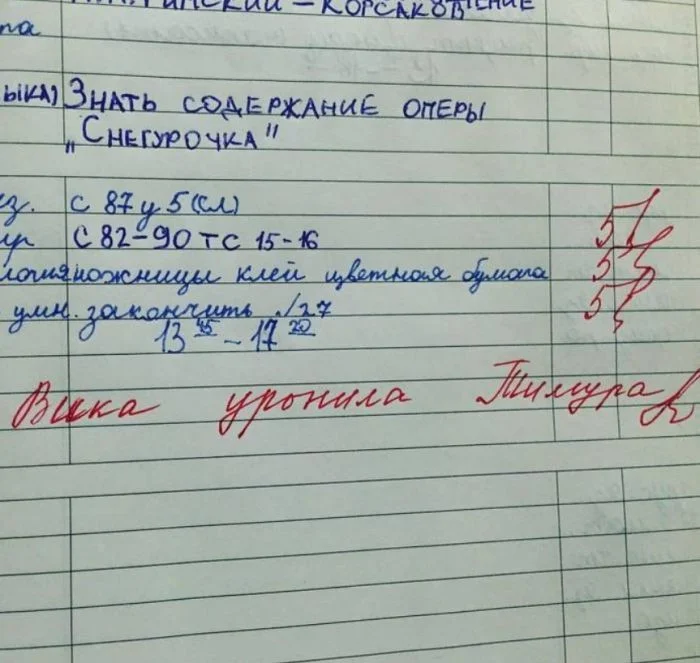 РИМСКИЙ – КОРСАКОВ
ЕНИЕ
па
ЫКА) ЗНАТЬ СОДЕРЖАНИЕ ОПЕРЫ
„СНЕГУРОЧКА"
з. с 87 у 5 (сл) 5
С 82–90 ТС 15–16 5
логия ножницы клей цветная бумага 5
умн. закончить /27
13 45 – 17 20
Вика уронила Тимура